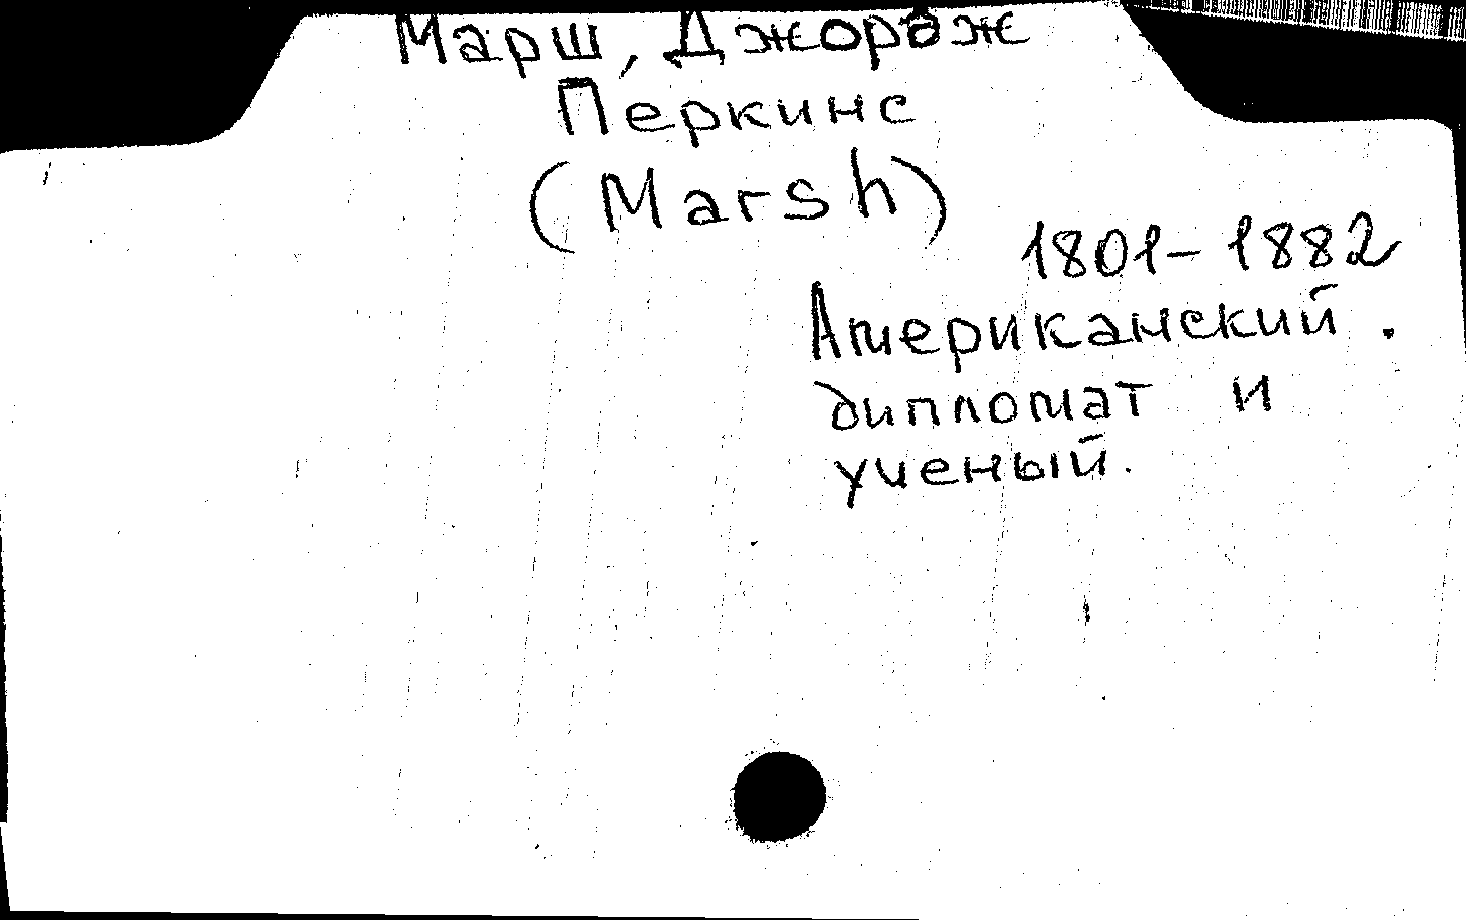 Марш, Джордж
Перкинс
(Marsh)
1801-1882
Американский.
дипломат и
ученый.